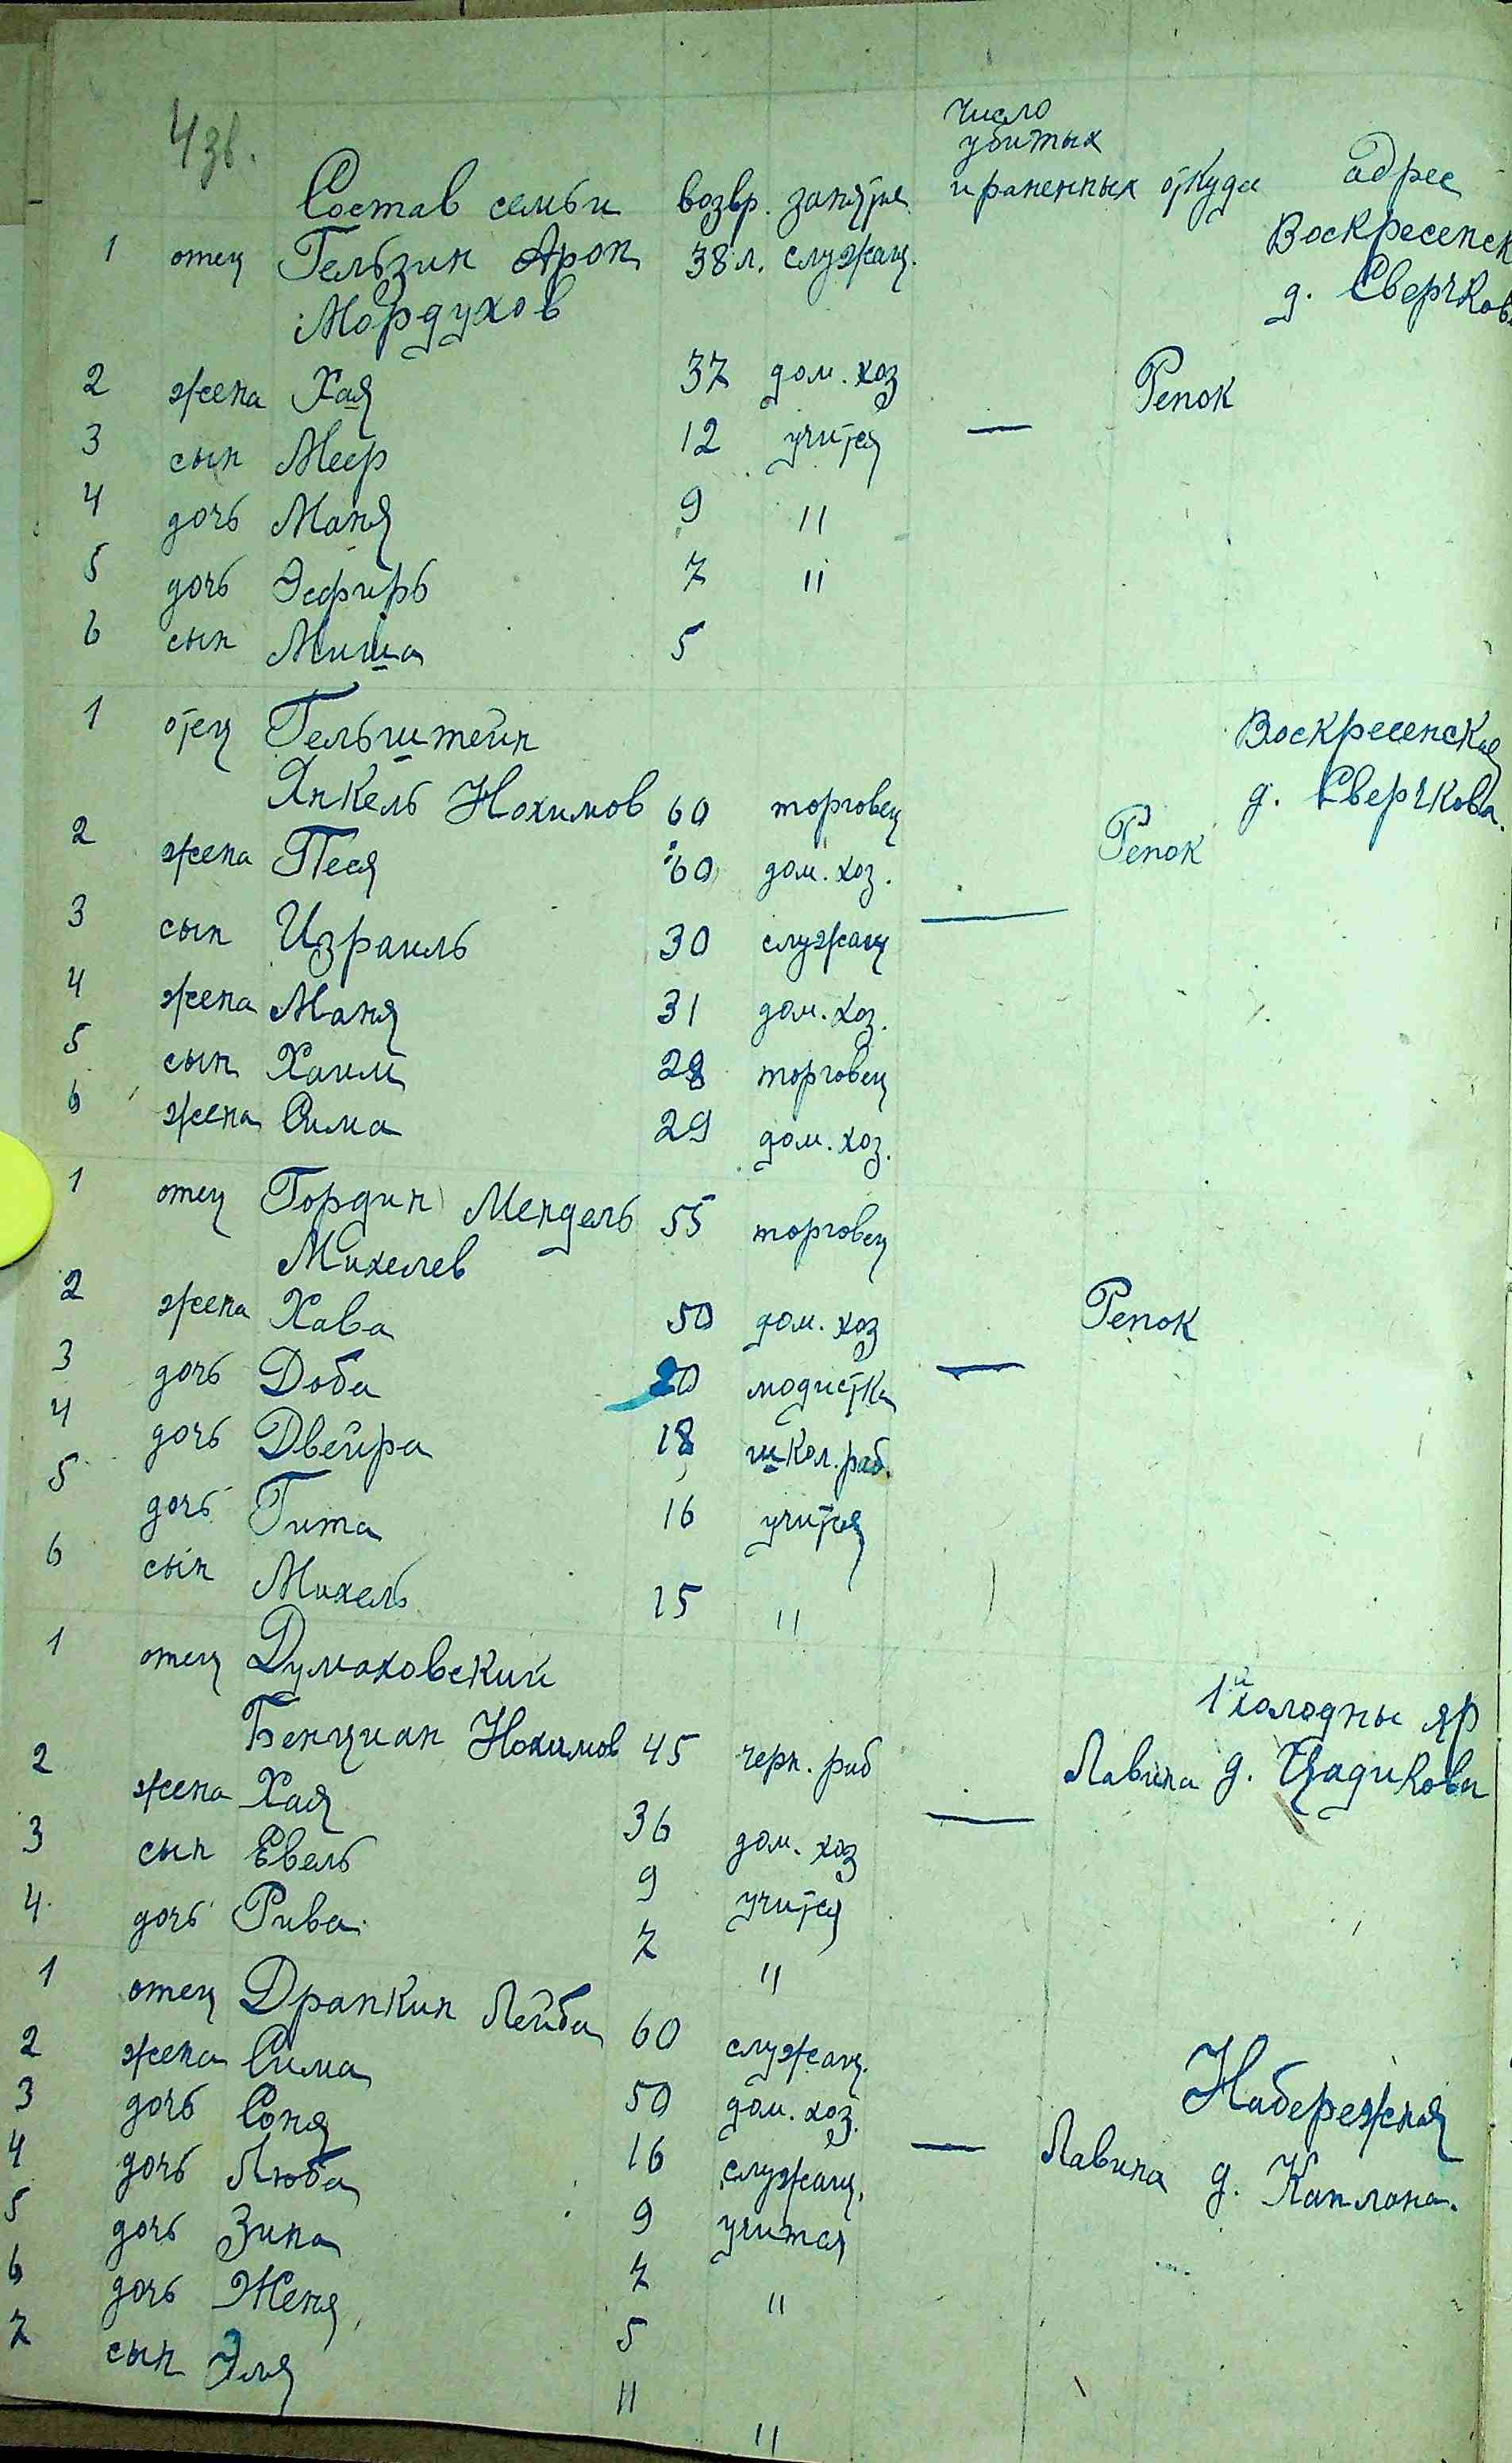 4 зв.
Состав семьи возвр. занятие число убитых и раненных откуда адрес
1 отец Гельзин Арон 38 л. служащ. Воскресенск
Мордухов д. Сверчков
2 жена Хая 37 дом. хоз Репок
3 сын Меер 12 учится —
4 дочь Маня 9 "
5 дочь Эсфирь 7 "
6 сын Миша 5
1 отец Гельштейн Воскресенская
Янкель Нохимов 60 торговец д. Сверчкова.
2 жена Песя 60 дом. хоз. Репок
3 сын Израиль 30 служащ —
4 жена Маня 31 дом. хоз.
5 сын Хаим 28 торговец
6 жена Сима 29 дом. хоз.
1 отец Гордин Мендель 55 торговец
Михелев
2 жена Хава 50 дом. хоз Репок
3 дочь Доба 20 модистка —
4 дочь Двейра 18 школ. раб.
5 дочь Гита 16 учится
6 сын Михель 15 "
1 отец Думаховский 1й холодны яр
Бенциан Нохимов 45 черн. раб Лавина д. Цадикова
2 жена Хая 36 дом. хоз —
3 сын Евель 9 учится
4 дочь Рива 7 "
1 отец Драпкин Лейба 60 служащ. Набережная
2 жена Сима 50 дом. хоз.
3 дочь Соня 16 служащ. — Лавина д. Каплана.
4 дочь Люба 9 учится
5 дочь Зина 7 "
6 дочь Женя 5
7 сын Эля 11 "